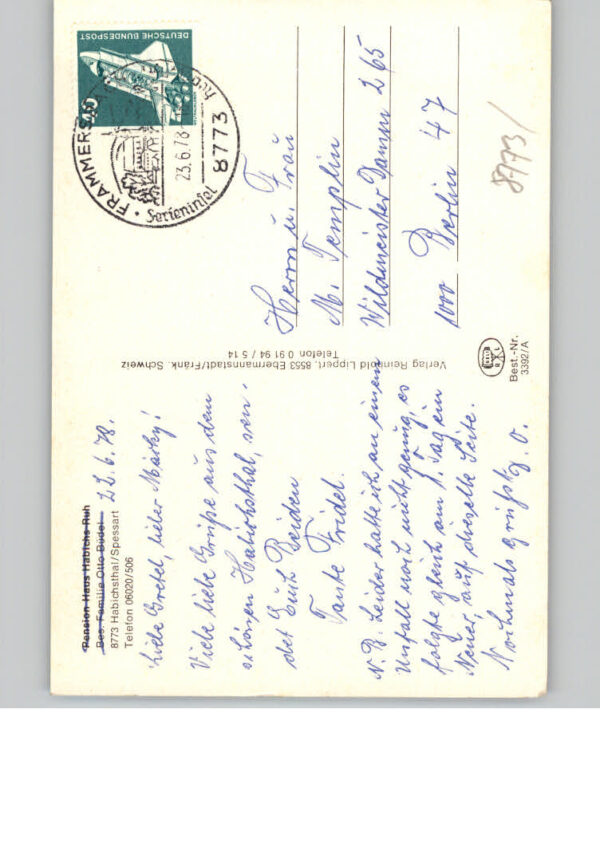 Pension Haus Habichs Ruh
Bes. Familie Otto Büdel
8773 Habichsthal/Spessart
Telefon 06020/506
22.6.78.
Liebe Gretel, lieber Märky!
Viele liebe Grüße aus dem
schönen Habichsthal, sen-
det Euch Beiden
Tante Fridel.
N.B. Leider hatte ich an einem
Unfall noch nicht genug, es
folgte gleich am 1. Tag ein
Neuer, auf dieselle Seite.
Nochmals Grüße
Verlag Reinhold Lippert, 8553 Ebermannstadt/Fränk. Schweiz
Telefon 0 91 94 / 5 14
DEUTSCHE BUNDESPOST
40
FRAMMERSBACH
23.6.78
8773
Ferieninsel
Herrn u. Frau
M. Templin
Wildmeister Damm 265
1000 Berlin 47
8773/
Best.-Nr.
3392/A